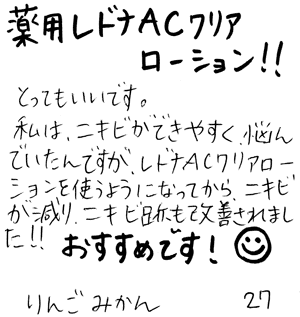 薬用レドナACクリア
ローション!!
とってもいいです。
私は、ニキビができやすく、悩ん
でいたんですが、レドナACクリアロー
ションを使うようになってから、ニキビ
が減り、ニキビ跡も改善されまし
た!!
おすすめです!
りんごみかん 27